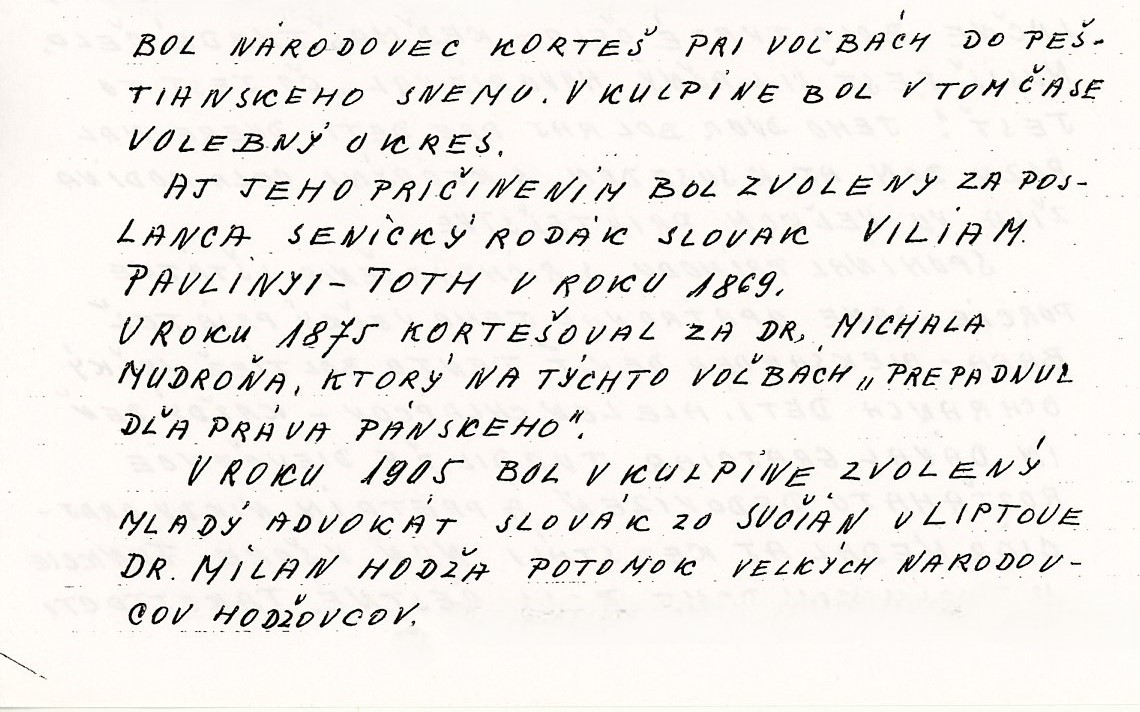 BOL NÁRODOVEC KORTEŠ PRI VOĽBÁCH DO PEŠ-
TIANSKEHO SNEMU. V KULPÍNE BOL V TOM ČASE
VOLEBNÝ OKRES.
AJ JEHO PRIČINENÍM BOL ZVOLENÝ ZA POS-
LANCA SENICKÝ RODÁK SLOVÁK VILIAM
PAULÍNYI-TOTH V ROKU 1869.
V ROKU 1875 KORTEŠOVAL ZA DR. MICHALA
MUDROŇA, KTORÝ NA TÝCHTO VOĽBÁCH „PREPADNUL
DĽA PRÁVA PÁNSKEHO".
V ROKU 1905 BOL V KULPÍNE ZVOLENÝ
MLADÝ ADVOKÁT SLOVÁK ZO SUČIAN V LIPTOVE
DR. MILAN HODŽA POTOMOK VELKÝCH NÁRODOV-
COV HODŽOVCOV.